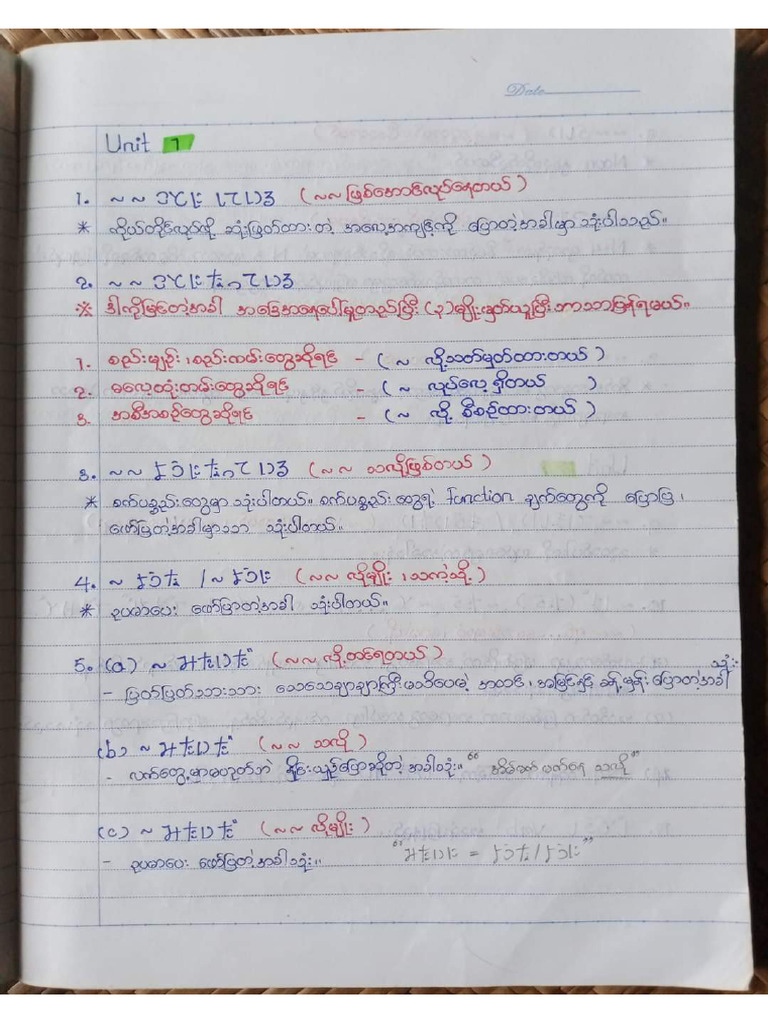 Date
Unit 1
1. ~ ~ ように している (~ ~ ဖြစ်အောင်လုပ်နေတယ်)
* ကိုယ်တိုင်လုပ်ဖို့ ဆုံးဖြတ်ထားတဲ့ အလေ့အကျင့်ကို ပြောတဲ့အခါမှာ သုံးပါသည်။
2. ~ ~ ように なっている
* ဒါကိုမြင်တဲ့အခါ အခြေအနေပေါ်မူတည်ပြီး (၃)မျိုးမှတ်ယူပြီး ဘာသာပြန်ရမယ်။
1. စည်းမျဉ်း၊စည်းကမ်းတွေဆိုရင် - ( ~ လို့သတ်မှတ်ထားတယ် )
2. ဓလေ့ထုံးတမ်းတွေဆိုရင် - ( ~ လုပ်လေ့ရှိတယ် )
3. အစီအစဉ်တွေဆိုရင် - ( ~ လို့ စီစဉ်ထားတယ် )
3. ~ ~ ように なっている (~ ~ သလိုဖြစ်တယ်)
* စက်ပစ္စည်းတွေမှာ သုံးပါတယ်။ စက်ပစ္စည်းတွေရဲ့ function ချက်တွေကို ပြောပြ၊
ဖော်ပြတဲ့အခါမှာသာ သုံးပါတယ်။
4. ~ ような / ~ ように (~ ~ လိုမျိုး ၊ သကဲ့သို့)
* ဥပမာပေး ဖော်ပြတဲ့အခါ သုံးပါတယ်။
5. (a) ~ みたいだ (~ ~ လို့ထင်ရတယ်)
- ပြတ်ပြတ်သားသား သေသေချာချာကြီးမသိပေမဲ့ အထင်၊အမြင်နှင့် ခန့်မှန်းပြောတဲ့အခါ သုံး။
(b) ~ みたいだ (~ ~ သလို)
- လက်တွေ့မှာမဟုတ်ဘဲ နှိုင်းယှဉ်ပြောဆိုတဲ့အခါသုံး။ “အိမ်မက် မက်နေ သလို”
(c) ~ みたいだ (~ ~ လိုမျိုး)
- ဥပမာပေး ဖော်ပြတဲ့အခါသုံး။ “みたいに = ような/ように”